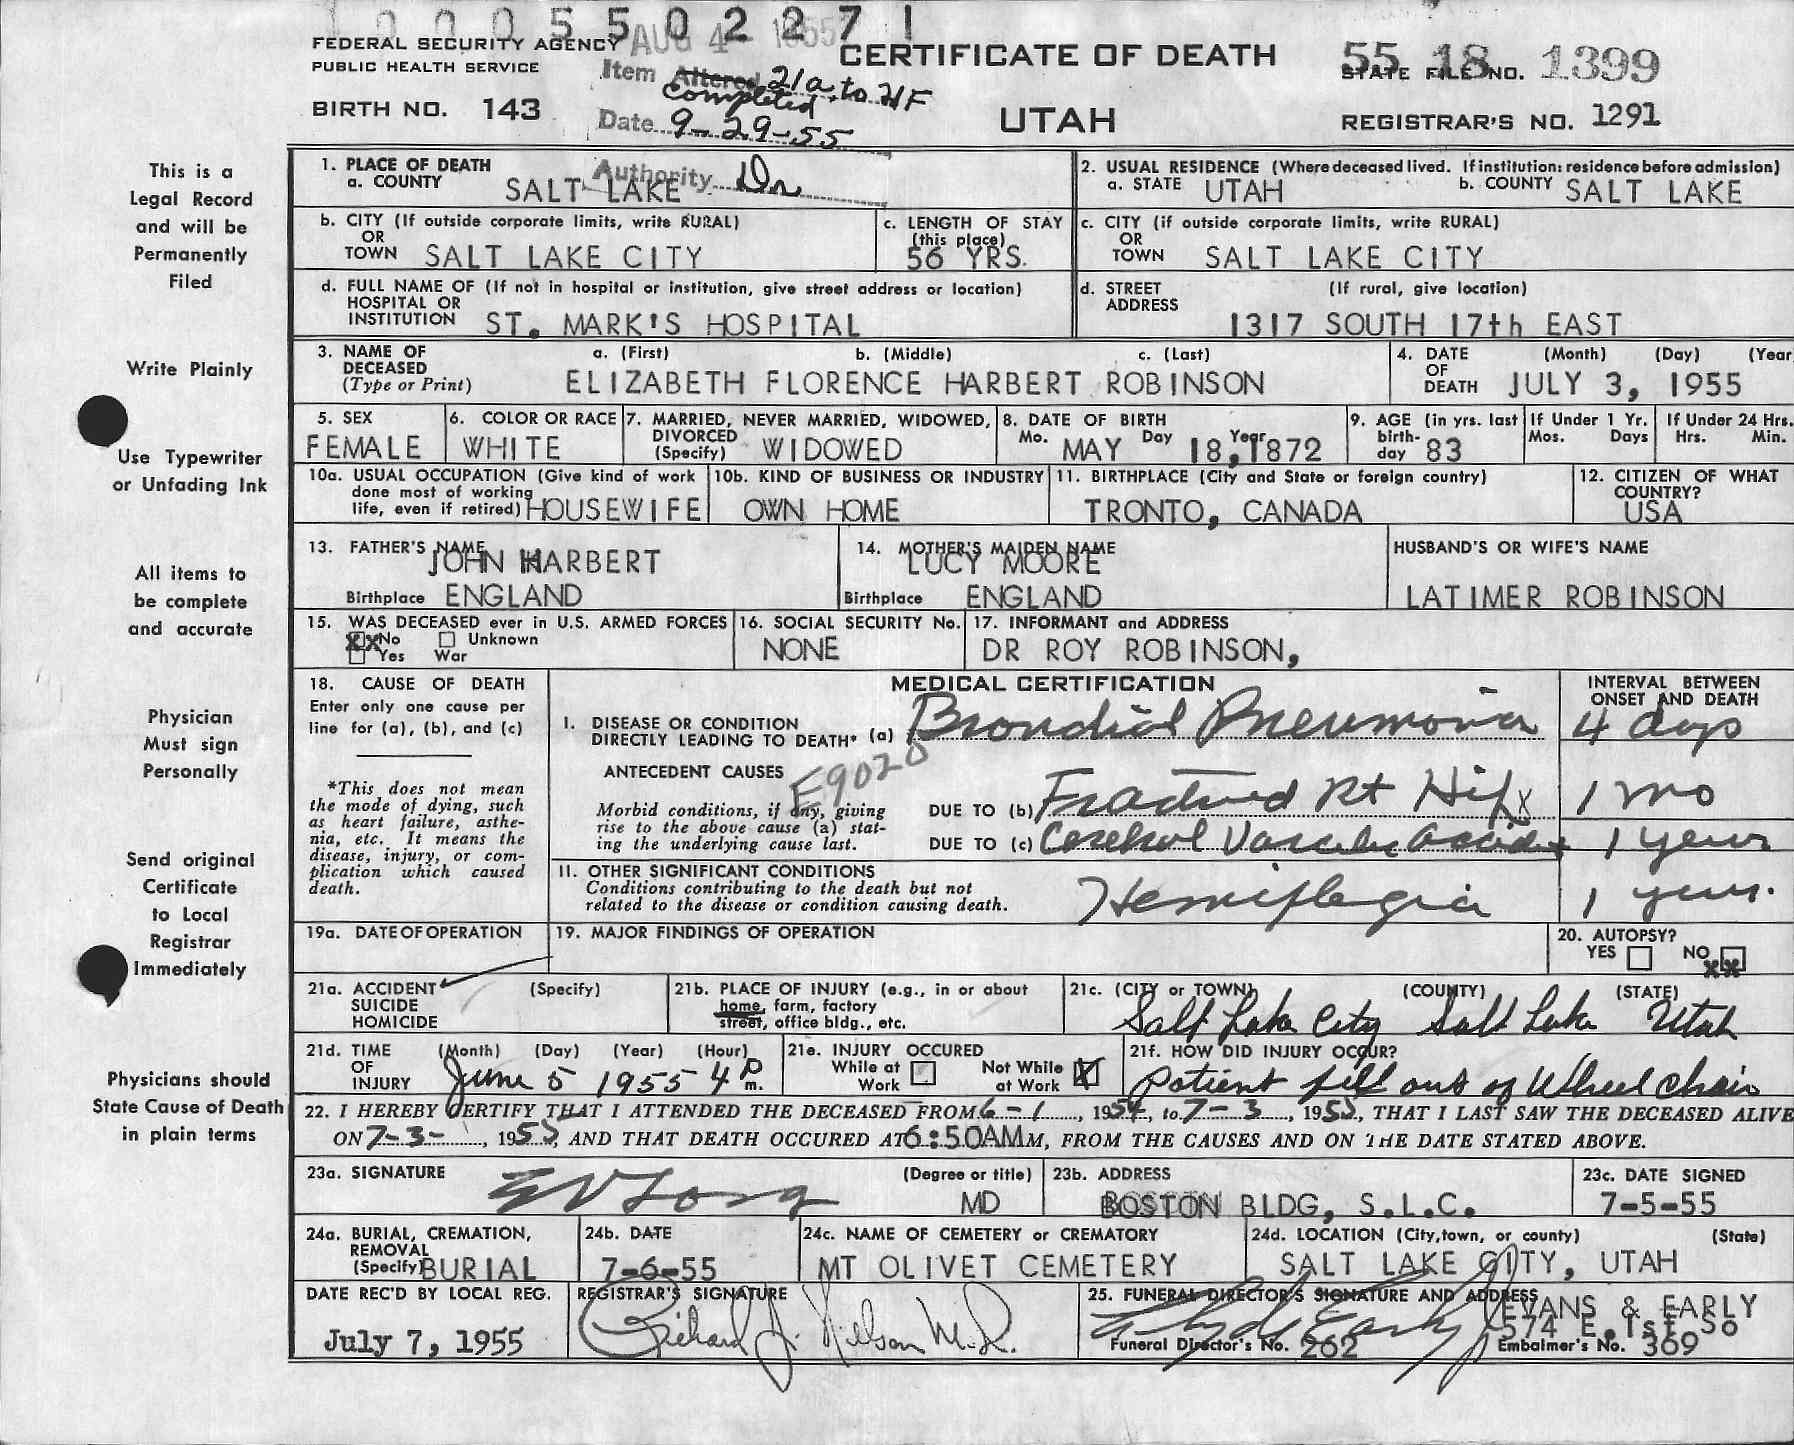 10005502271
AUG 4 1955
FEDERAL SECURITY AGENCY
PUBLIC HEALTH SERVICE
BIRTH NO. 143
Item Altered 21a to 21F
Completed
Date 9-29-55
Authority Dr
CERTIFICATE OF DEATH
UTAH
55 18 1399
STATE FILE NO.
REGISTRAR'S NO. 1291
This is a
Legal Record
and will be
Permanently
Filed
Write Plainly
Use Typewriter
or Unfading Ink
All items to
be complete
and accurate
Physician
Must sign
Personally
Send original
Certificate
to Local
Registrar
Immediately
Physicians should
State Cause of Death
in plain terms
1. PLACE OF DEATH
a. COUNTY SALT LAKE
2. USUAL RESIDENCE (Where deceased lived. If institution: residence before admission)
a. STATE UTAH b. COUNTY SALT LAKE
b. CITY (If outside corporate limits, write RURAL)
OR
TOWN SALT LAKE CITY
c. LENGTH OF STAY
(this place)
56 YRS.
c. CITY (if outside corporate limits, write RURAL)
OR
TOWN SALT LAKE CITY
d. FULL NAME OF (If not in hospital or institution, give street address or location)
HOSPITAL OR
INSTITUTION ST. MARK'S HOSPITAL
d. STREET (If rural, give location)
ADDRESS
1317 SOUTH 17th EAST
3. NAME OF a. (First) b. (Middle) c. (Last)
DECEASED
(Type or Print) ELIZABETH FLORENCE HARBERT ROBINSON
4. DATE (Month) (Day) (Year
OF
DEATH JULY 3, 1955
5. SEX
FEMALE
6. COLOR OR RACE
WHITE
7. MARRIED, NEVER MARRIED, WIDOWED,
DIVORCED
(Specify) WIDOWED
8. DATE OF BIRTH
Mo. MAY Day 18, Year 1872
9. AGE (in yrs. last
birth-
day 83
If Under 1 Yr.
Mos. Days
If Under 24 Hrs.
Hrs. Min.
10a. USUAL OCCUPATION (Give kind of work
done most of working
life, even if retired) HOUSEWIFE
10b. KIND OF BUSINESS OR INDUSTRY
OWN HOME
11. BIRTHPLACE (City and State or foreign country)
TRONTO, CANADA
12. CITIZEN OF WHAT
COUNTRY?
USA
13. FATHER'S NAME
JOHN HARBERT
Birthplace ENGLAND
14. MOTHER'S MAIDEN NAME
LUCY MOORE
Birthplace ENGLAND
HUSBAND'S OR WIFE'S NAME
LATIMER ROBINSON
15. WAS DECEASED ever in U.S. ARMED FORCES
XX No Unknown
Yes War
16. SOCIAL SECURITY No.
NONE
17. INFORMANT and ADDRESS
DR ROY ROBINSON,
18. CAUSE OF DEATH
Enter only one cause per
line for (a), (b), and (c)
*This does not mean
the mode of dying, such
as heart failure, asthe-
nia, etc. It means the
disease, injury, or com-
plication which caused
death.
MEDICAL CERTIFICATION
INTERVAL BETWEEN
ONSET AND DEATH
I. DISEASE OR CONDITION
DIRECTLY LEADING TO DEATH* (a) Bronchial Pneumonia 4 days
ANTECEDENT CAUSES E9020
Morbid conditions, if any, giving
rise to the above cause (a) stat-
ing the underlying cause last.
DUE TO (b) Fractured Rt Hip x 1 mo
DUE TO (c) Cerebral Vascular Accident 1 year
11. OTHER SIGNIFICANT CONDITIONS
Conditions contributing to the death but not
related to the disease or condition causing death.
Hemiplegia 1 year.
19a. DATE OF OPERATION
19. MAJOR FINDINGS OF OPERATION
20. AUTOPSY?
YES NO XX
21a. ACCIDENT (Specify)
SUICIDE
HOMICIDE
21b. PLACE OF INJURY (e.g., in or about
home, farm, factory
street, office bldg., etc.
21c. (CITY or TOWN) (COUNTY) (STATE)
Salt Lake City Salt Lake Utah
21d. TIME (Month) (Day) (Year) (Hour)
OF
INJURY June 5 1955 4 P m.
21e. INJURY OCCURED
While at Work
Not While at Work X
21f. HOW DID INJURY OCCUR?
Patient fell out of Wheel chair
22. I HEREBY CERTIFY THAT I ATTENDED THE DECEASED FROM 6-1, 1954, to 7-3, 1955, THAT I LAST SAW THE DECEASED ALIVE
ON 7-3-, 1955, AND THAT DEATH OCCURED AT 6:50AM M, FROM THE CAUSES AND ON THE DATE STATED ABOVE.
23a. SIGNATURE (Degree or title)
E V Long MD
23b. ADDRESS
BOSTON BLDG, S.L.C.
23c. DATE SIGNED
7-5-55
24a. BURIAL, CREMATION,
REMOVAL
(Specify) BURIAL
24b. DATE
7-6-55
24c. NAME OF CEMETERY or CREMATORY
MT OLIVET CEMETERY
24d. LOCATION (City, town, or county) (State)
SALT LAKE CITY, UTAH
DATE REC'D BY LOCAL REG.
July 7, 1955
REGISTRAR'S SIGNATURE
Richard J. Nielson M.D.
25. FUNERAL DIRECTOR'S SIGNATURE AND ADDRESS
EVANS & EARLY
574 E. 1st So
Funeral Director's No. 262
Embalmer's No. 369